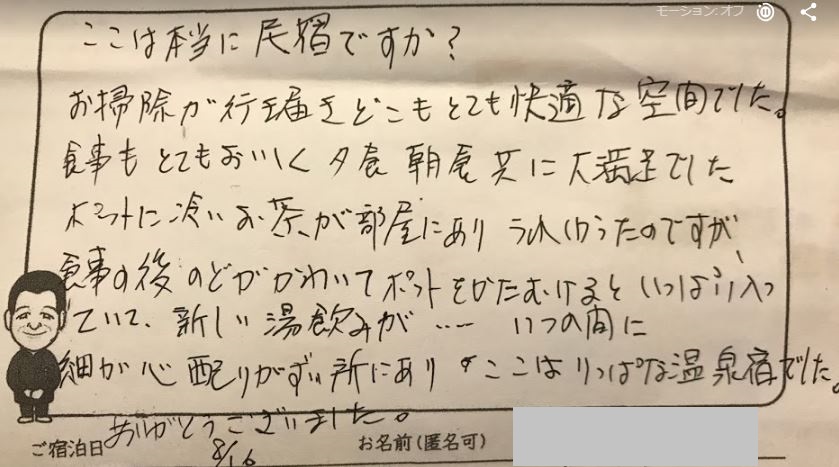 モーション: オフ
ここは本当に民宿ですか?
お掃除が行き届きどこもとても快適な空間でした。
食事もとてもおいしく夕食朝食共に大満足でした
ポットに冷いお茶が部屋にありうれしかったのですが、
食事の後のどがかわいてポットをかたむけるといっぱい入っ
ていて、新しい湯飲みが……いつの間に
細か心配りがずい所にありここはりっぱな温泉宿でした。
ありがとうございました。
ご宿泊日 8/16 お名前(匿名可)